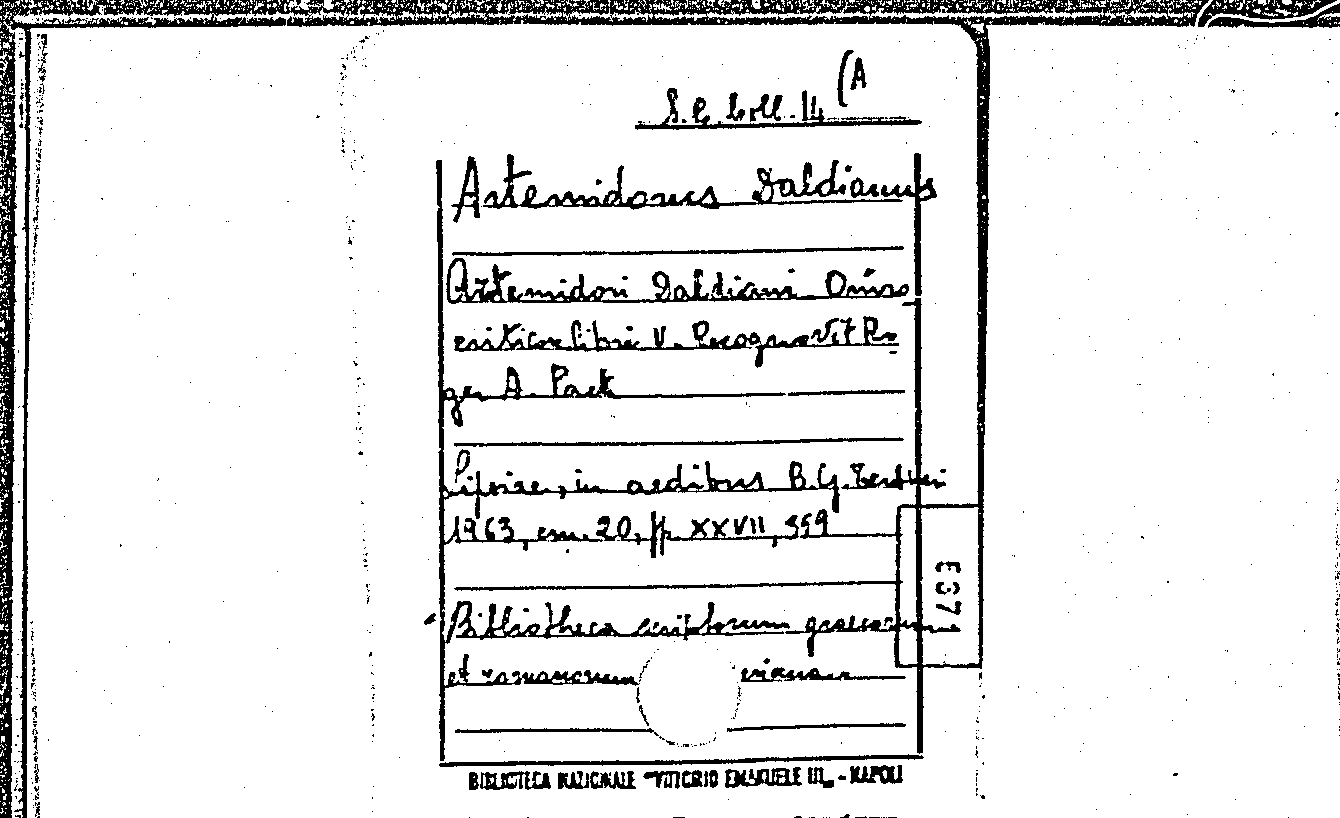 S. G. Coll. 14 (A
Artemidorus Daldianus
Artemidori Daldiani Oniro
criticon libri V. Recognovit Ro
ger A. Pack
Lipsiae, in aedibus B.G. Teubneri
1963, cm. 20, pp. XXVII, 359
Bibliotheca scriptorum graecorum
et romanorum eriana
BIBLIOTECA NAZIONALE "VITTORIO EMANUELE III" - NAPOLI